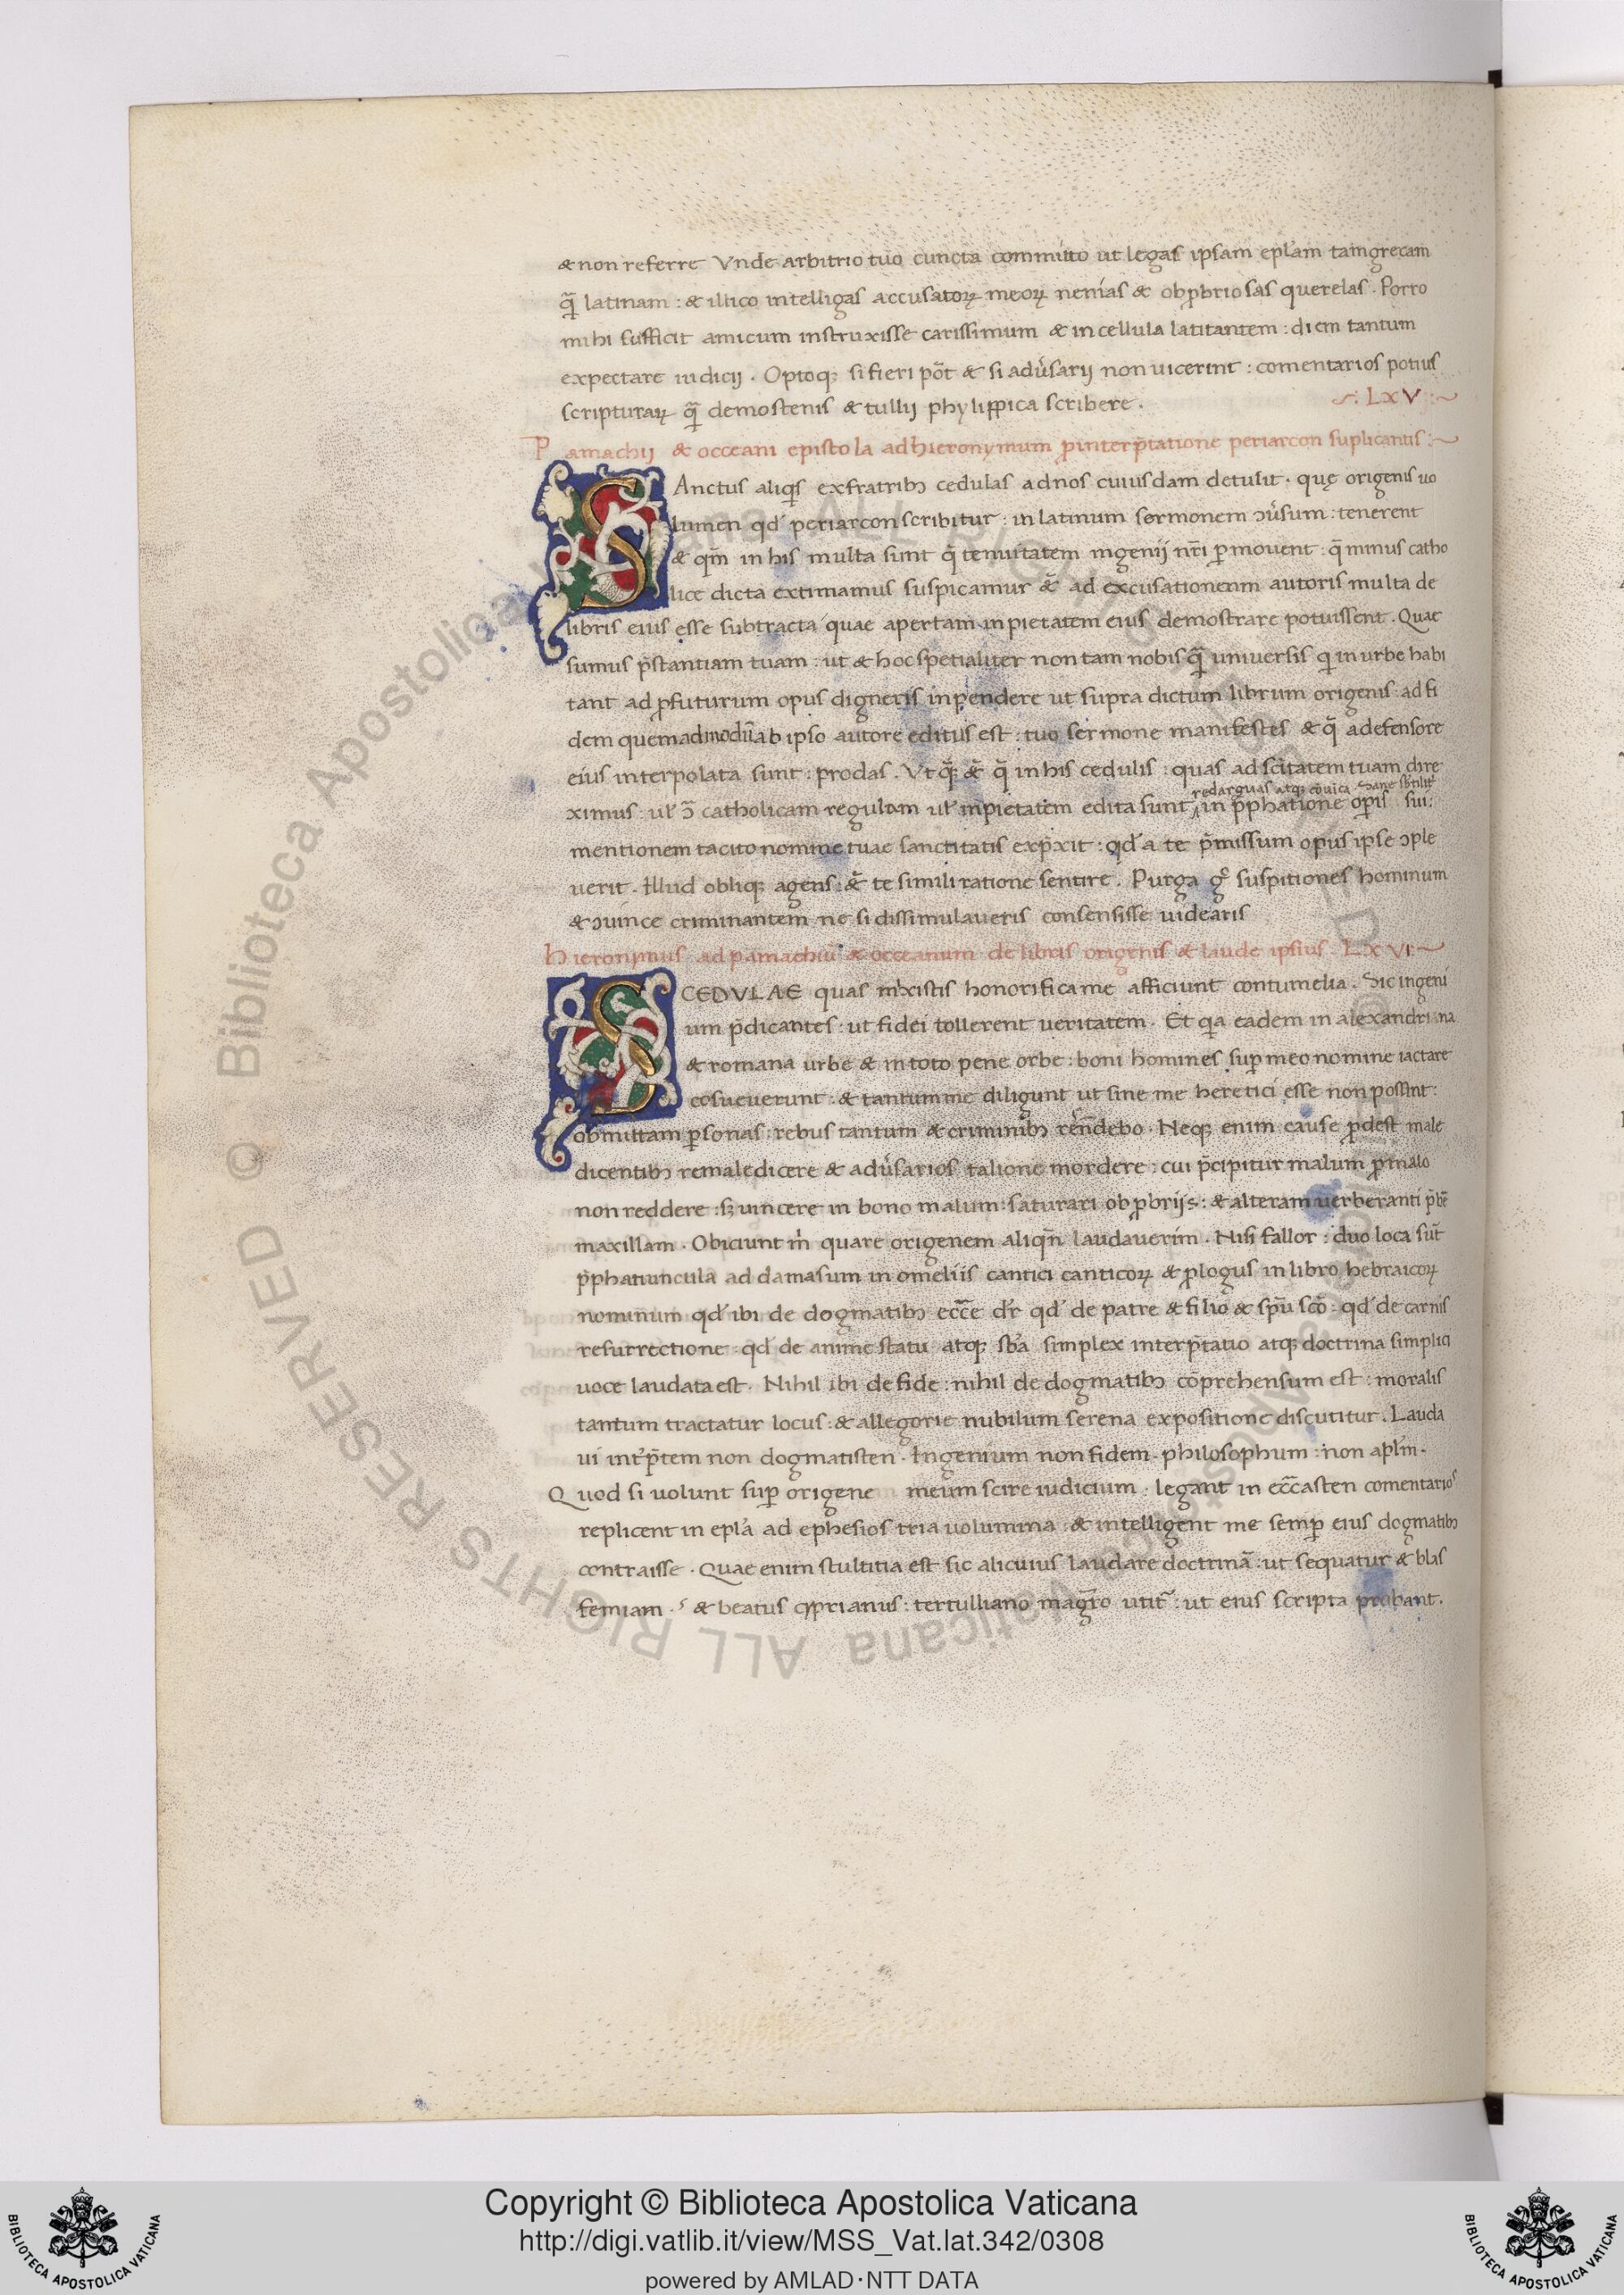 & non referre Vnde arbitrio tuo cuncta commito ut legas ipsam epl̄am tamgrecam
q̄ latinam : & illico intelligas accusatoꝝ meoꝝ nenias & obꝓbriosas querelas . Porro
mihi sufficit amicum instruxisse carissimum & in cellula latitantem : diem tantum
expectare iudicij . Optoqꝫ si fieri pōt & si adu̾sarij non uicerint : comentarios potius
scripturaꝝ q̄ demostenis & tullij phylippica scribere .
LxV
Pamachij & occeani epistola ad hieronymum ꝓ interp̄tatione periarcon suplicantis
SAnctus aliqis ex fratribꝫ cedulas ad nos cuiusdam detulit . quę origenis uo
lumen qd́ periarcon scribitur : in latinum sermonem ɔu̾sum : tenerent
& qm̄ in his multa sunt q̄ tenuitatem ingenij nr̄i ꝑmouent : q̄ minus catho
lice dicta extimamus suspicamur &̄ ad excusationeam autoris multa de
libris eius esse subtracta quae apertam inpietatem eius demostrare potuissent . Quae
sumus p̄stantiam tuam : ut & hoc spetialiter non tam nobis q̄ uniuersis qi in urbe habi
tant ad ꝓfuturum opus digneris inpendere ut supra dictum librum origenis : ad fi
dem quemadmodū ab ipso autore editus est : tuo sermone manifestes & q̄ a defensore
eius interpolata sunt : prodas . Vt qꝫ &̄ q̄ in his cedulis : quas ad sc̄itatem tuam dire
redarguas atqꝫ cōuica . Sane
ximus : ul̄ ɔ̄ catholicam regulam ul̄ inpietatem edita sunt in p̄phatione oꝑis sui
mentionem tacito nomine tuae sanctitatis exp̄xit : qd́ a te p̄missum opus ipse ɔple
uerit . Illud obliqꝫ agens : &̄ te simili ratione sentire . Purga gͦ suspitiones hominum
& ɔuince criminantem ne si dissimulaueris consensisse uidearis
Hieronimus ad pamachiū & occeanum de libris origenis & laude ipsius . LxVI
SCEDVLAE quas mixistis honorifica me afficiunt contumelia . Sic ingeni
um p̄dicantes : ut fidei tollerent ueritatem . Et qia eadem in alexandriana
& romana urbe & in toto pene orbe : boni homines suꝑ meo nomine iactare
cosueuerunt : & tantum me diligunt ut sine me heretici esse non possint :
obmittam ꝑsonas : rebus tantum & criminibꝫ rēndebo . Neqꝫ enim cause ꝓdest male
dicentibꝫ remaledicere & adu̾sarios talione mordere : cui p̄cipitur malum ꝓ malo
non reddere : sꝫ uincere in bono malum : saturari obꝓbrijs : & alteram uerberanti p̄be
maxillam . Obiciunt m̄ quare origenem aliqn̄ laudauerim . Nisi fallor : duo loca sūt
p̄phatiuncula ad damasum in omeliis cantici canticoꝝ & ꝓlogus in libro hebraicoꝝ
nominum qd́ ibi de dogmatibꝫ ecc̄e dr̄ qd́ de patre & filio & spū scō : qd́ de carnis
resurrectione : qd́ de anime statu atqꝫ sb̄a simplex interp̄tatio atqꝫ doctrina simplici
uoce laudata est . Nihil ibi de fide : nihil de dogmatibꝫ cōprehensum est : moralis
tantum tractatur locus : & allegorie nubilum serena expositione discutitur . Lauda
ui int̾p̄tem non dogmatisten . Ingenium non fidem . philosophum : non apl̄m .
Quod si uolunt suꝑ origene meum scire iudicium . legant in ecc̄asten comentarios
replicent in epl̄a ad ephesios tria uolumina : & intelligent me semꝑ eius dogmatibꝫ
contraisse . Quae enim stultitia est sic alicuius laudare doctrinā : ut sequatur & blas
femiam . s & beatus cyprianus : tertulliano magr̄o utit̾ : ut eius scripta probant .
© Biblioteca Apostolica Vaticana ALL RIGHTS RESERVED
Copyright © Biblioteca Apostolica Vaticana
http://digi.vatlib.it/view/MSS_Vat.lat.342/0308
powered by AMLAD·NTT DATA
BIBLIOTECA APOSTOLICA VATICANA
BIBLIOTECA APOSTOLICA VATICANA